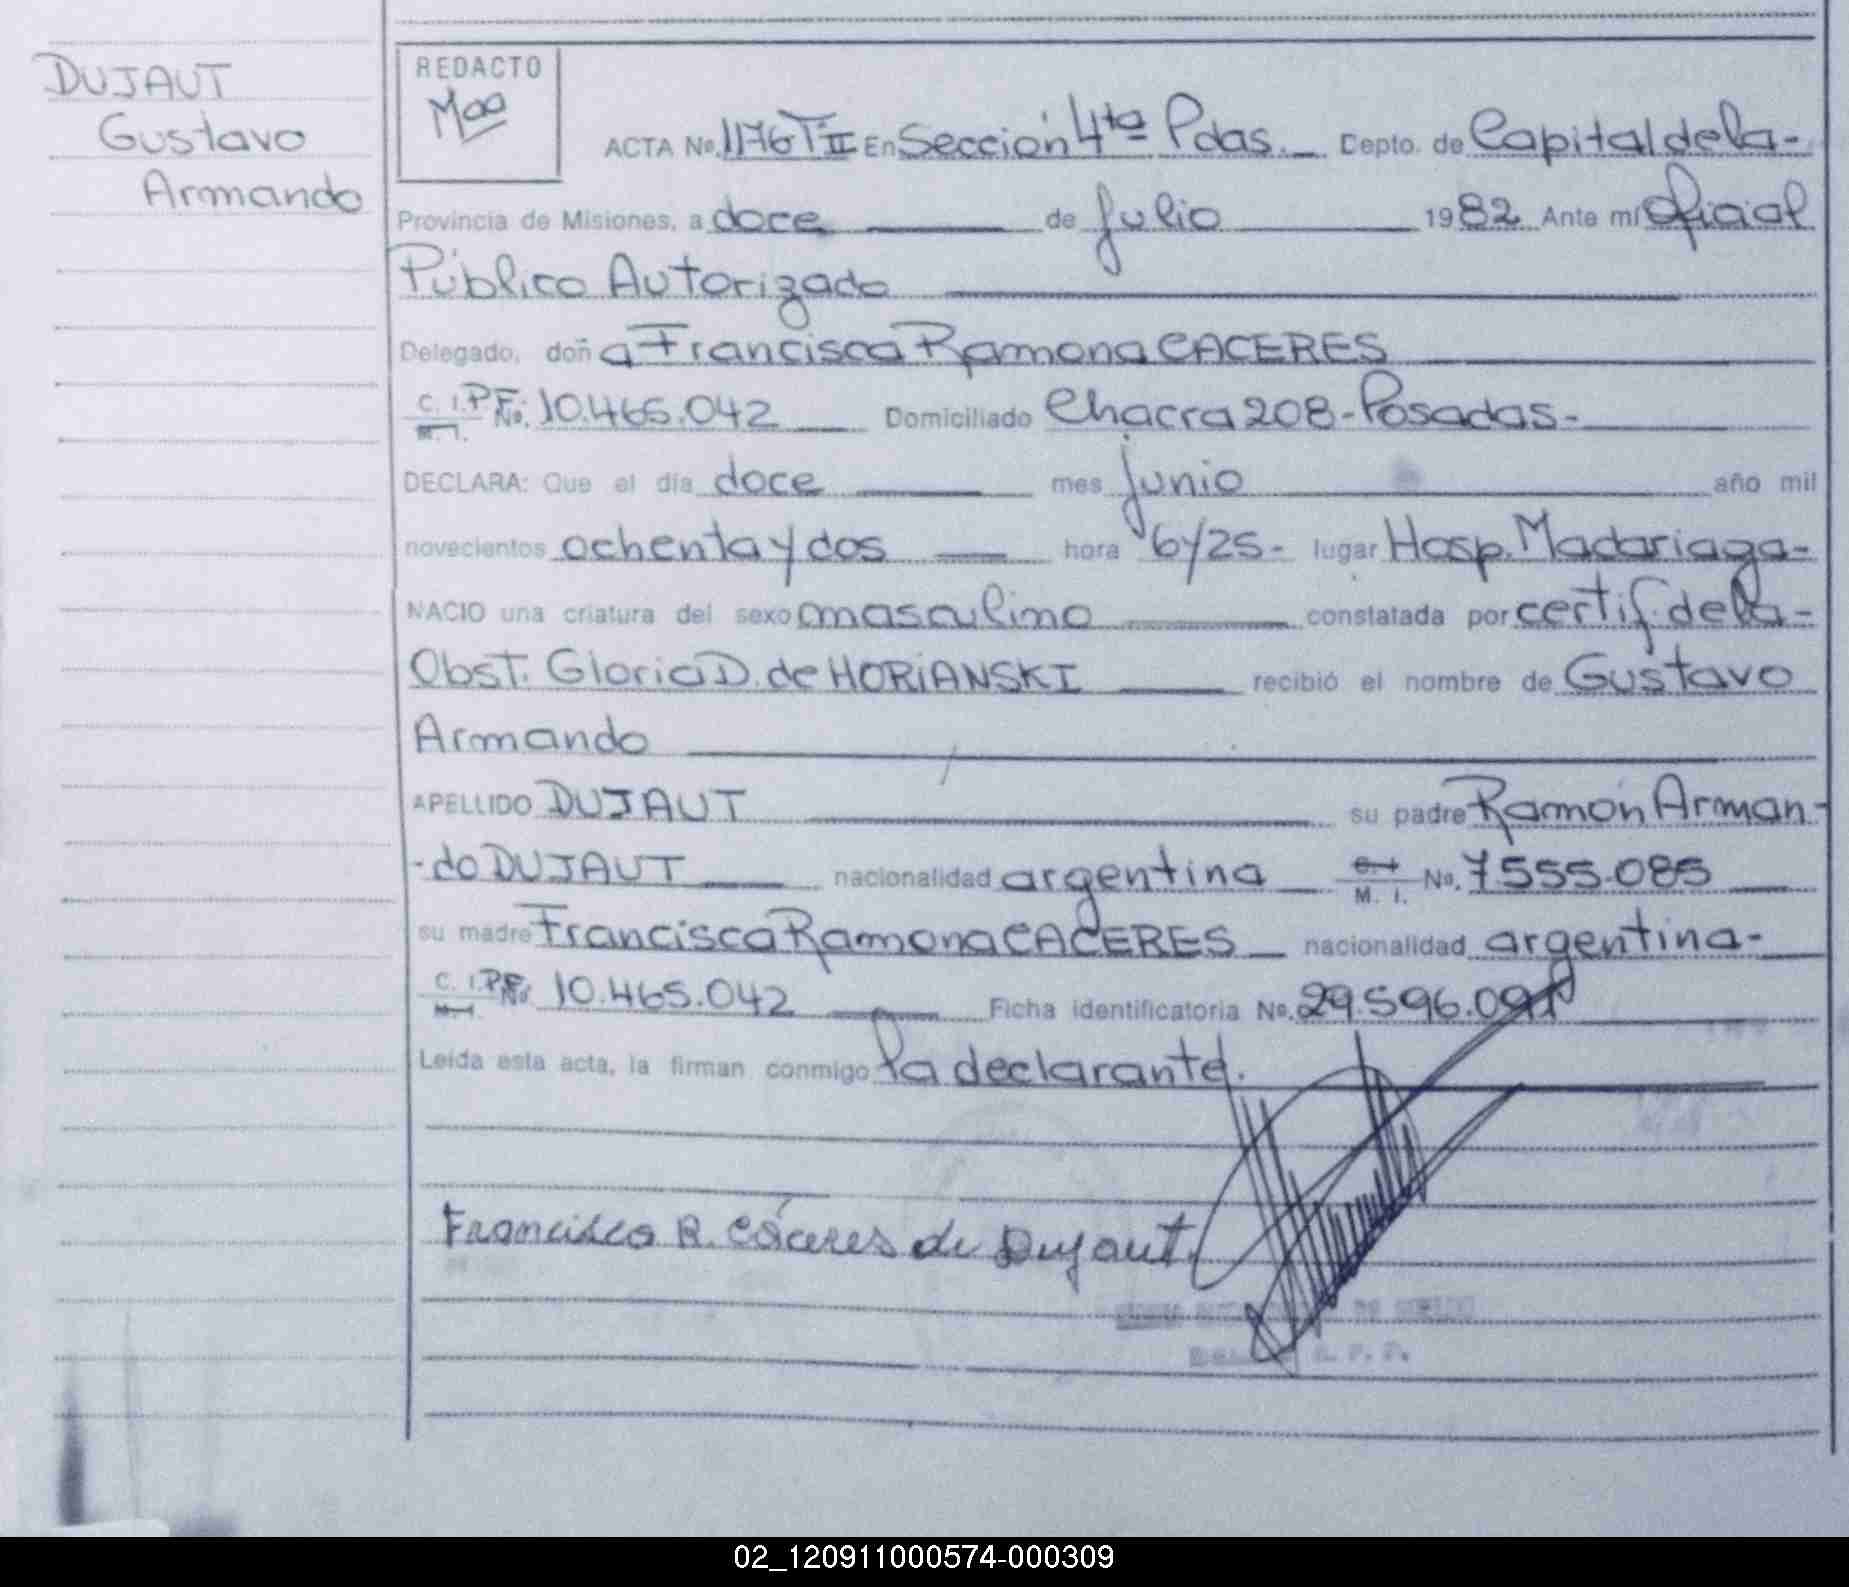 DUJAUT
Gustavo
Armando
REDACTO
ACTA No. 1176 T II En Sección 4ta Pdas. Depto. de Capital de la-
Provincia de Misiones, a doce de julio 1982 Ante mí Oficial
Público Autorizado
Delegado, doña Francisca Ramona CACERES
C. I. P.F. No. 10.465.042 Domiciliado Chacra 208-Posadas-
M. I.
DECLARA: Que el día doce mes junio año mil
novecientos ochenta y dos hora 6y25- lugar Hosp. Madariaga-
NACIO una criatura del sexo masculino constatada por certif. de la-
Obst. Gloria D. de HORIANSKI recibió el nombre de Gustavo
Armando
APELLIDO DUJAUT su padre Ramón Arman-
-do DUJAUT nacionalidad argentina C. I. M. I. No. 7555.085
su madre Francisca Ramona CACERES nacionalidad argentina-
C. I. P.F. No. 10.465.042 Ficha identificatoria No. 29.596.091
M. I.
Leída esta acta, la firman conmigo la declarante.
Francisca R. Cáceres de Dujaut
02_120911000574-000309